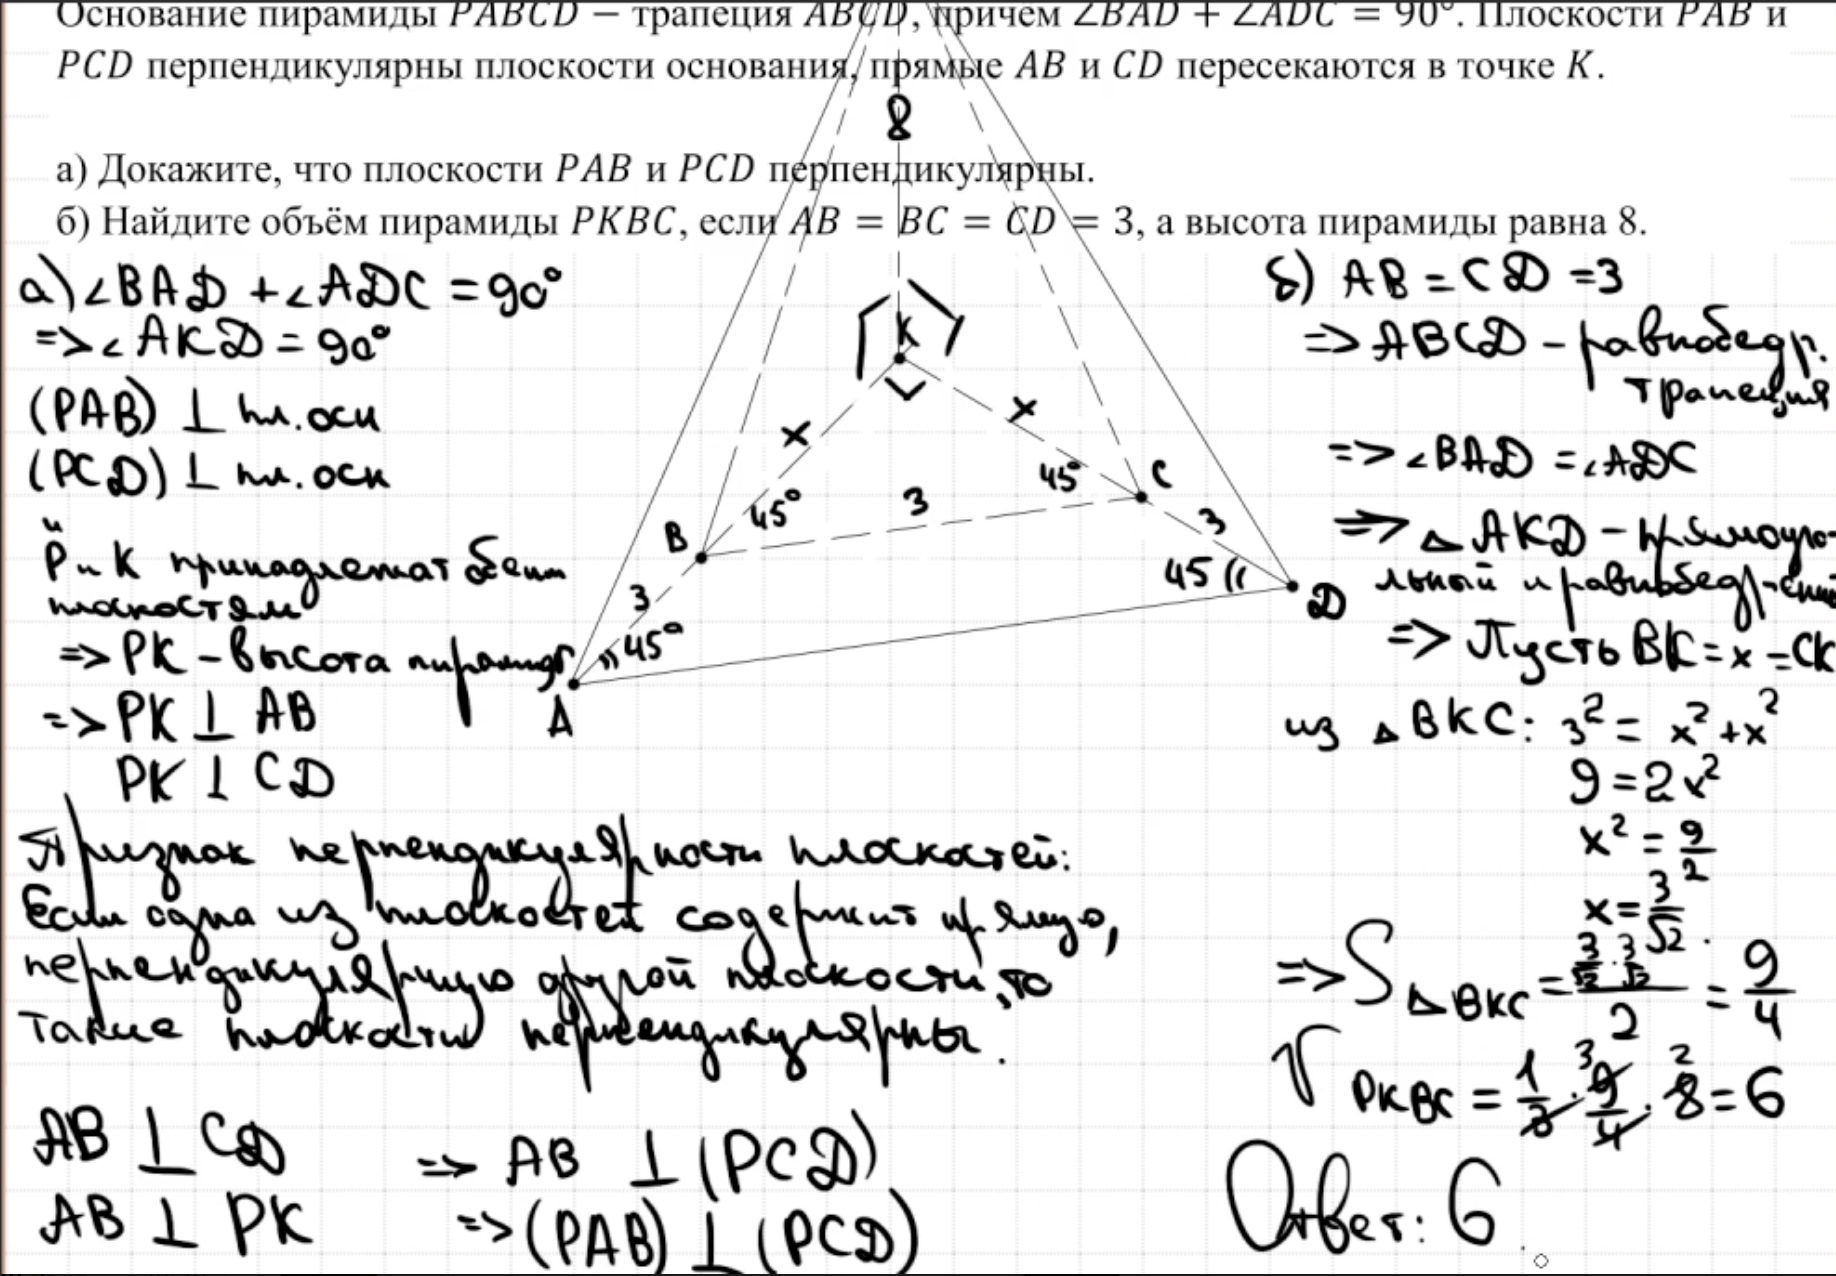 Основание пирамиды PABCD − трапеция ABCD, причём ∠BAD + ∠ADC = 90°. Плоскости PAB и
PCD перпендикулярны плоскости основания, прямые AB и CD пересекаются в точке K.
а) Докажите, что плоскости PAB и PCD перпендикулярны.
б) Найдите объём пирамиды PKBC, если AB = BC = CD = 3, а высота пирамиды равна 8.
а) ∠BAD + ∠ADC = 90°
=> ∠AKD = 90°
(PAB) ⊥ пл. осн
(PCD) ⊥ пл. осн
и
P и K принадлежат обеим
плоскостям
=> PK – высота пирамиды
=> PK ⊥ AB
PK ⊥ CD
Признак перпендикулярности плоскостей:
Если одна из плоскостей содержит прямую,
перпендикулярную другой плоскости, то
такие плоскости перпендикулярны.
AB ⊥ CD => AB ⊥ (PCD)
AB ⊥ PK => (PAB) ⊥ (PCD)
8
K
x x
45° C
45° 3
B 3
3 45 D
45°
A
б) AB = CD = 3
=> ABCD – равнобедр.
трапеция
=> ∠BAD = ∠ADC
=> △AKD – прямоуго-
льный и равнобедр-енн
=> Пусть BK = x = CK
из △BKC: 3² = x² + x²
9 = 2x²
x² = 9/2
x = 3/√2.
=> S△BKC = (3/√2 · 3/√2)/2 = 9/4
V PKBC = 1/3 · 9/4 · 8 = 6
3 2
Ответ: 6